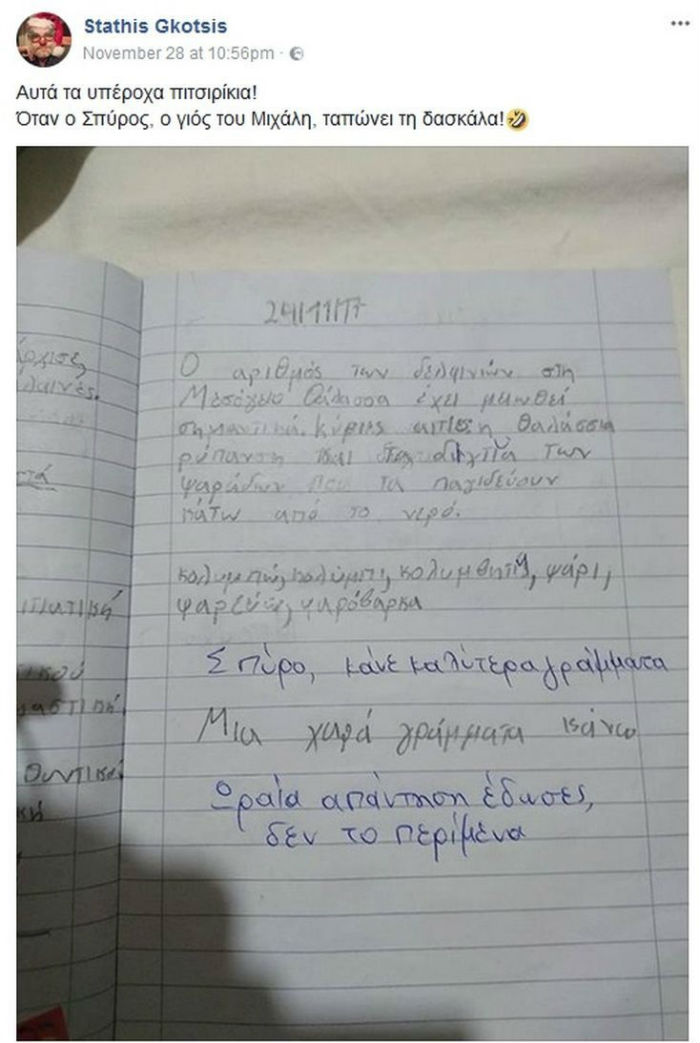 Stathis Gkotsis
November 28 at 10:56pm ·
Αυτά τα υπέροχα πιτσιρίκια!
Όταν ο Σπύρος, ο γιός του Μιχάλη, ταπώνει τη δασκάλα!
24/11/17
Ο αριθμός των δελφινιών στη
Μεσόγειο Θάλασσα έχει μειωθεί
σημαντικά. Κύριες αιτίες η θαλάσσια
ρύπανση και τα δίχτυα των
ψαράδων που τα παγιδεύουν
κάτω από το νερό.
κολυμπώ, κολύμπι, κολυμβητής, ψάρι,
ψαρεύω, ψαρόβαρκα
Σπύρο, κάνε καλύτερα γράμματα
Μια χαρά γράμματα κάνω
Ωραία απάντηση έδωσες,
δεν το περίμενα